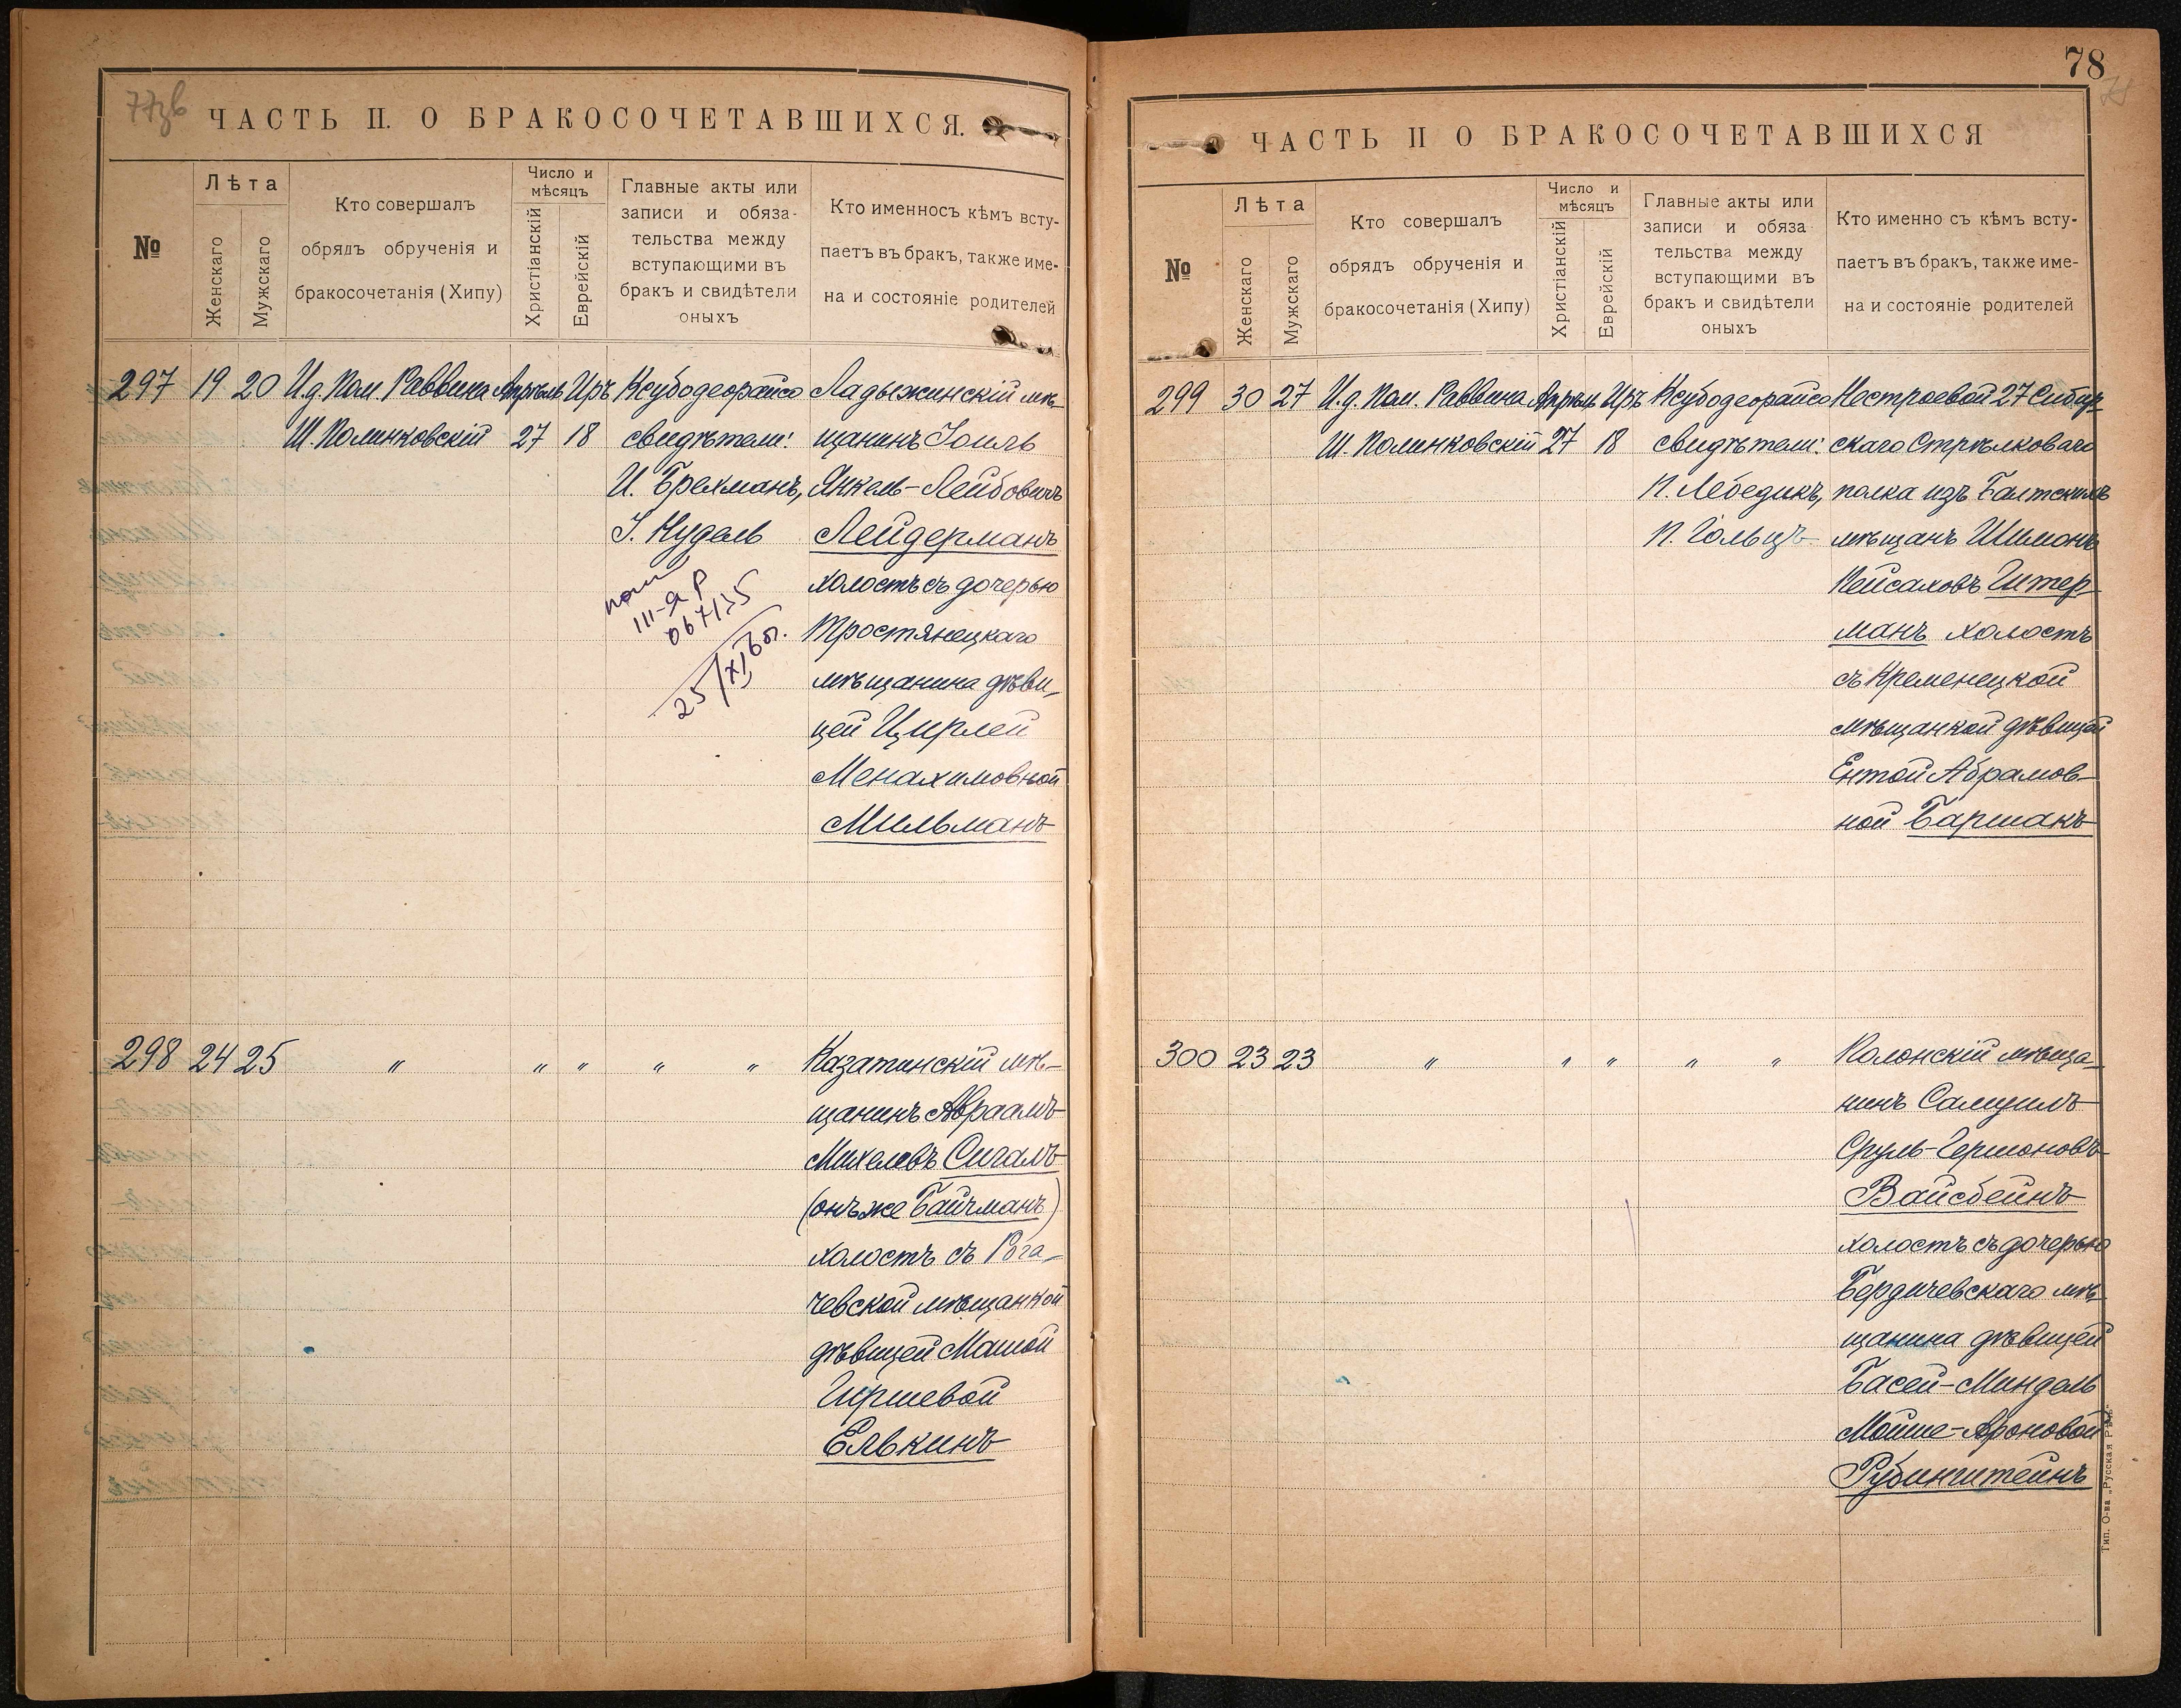 77зв
ЧАСТЬ II. О БРАКОСОЧЕТАВШИХСЯ.
№
Лѣта
Женскаго
Мужскаго
Кто совершалъ
обрядъ обрученія и
бракосочетанія (Хипу)
Число и
мѣсяцъ
Христіанскій
Еврейскій
Главные акты или
записи и обяза-
тельства между
вступающими въ
бракъ и свидѣтели
оныхъ
Кто именносъ кѣмъ всту-
паетъ въ бракъ, также име-
на и состояніе родителей
297 19 20 И.д. Пом. Раввина Апрѣль Иръ Ксубодеорайсо Ладыжинскій мѣ-
Ш. Полинковскій 27 18 свидѣтели: щанинъ Іоиль
И. Брехманъ, Янкель-Лейбовичъ
І. Нудель Лейдерманъ
холостъ съ дочерью
Тростянецкаго
мѣщанина дѣви-
цей Цирлей
Менахимовной
Мильманъ
III-я Р
067135
25/XI 60г.
298 24 25 " " " " " Казатинскій мѣ-
щанинъ Авраамъ
Михелевъ Сигалъ
(онъ же Байчманъ)
холостъ съ Рога-
чевской мѣщанкой
дѣвицей Машой
Гиршевой
Елькинъ
78
ЧАСТЬ II О БРАКОСОЧЕТАВШИХСЯ
№
Лѣта
Женскаго
Мужскаго
Кто совершалъ
обрядъ обрученія и
бракосочетанія (Хипу)
Число и
мѣсяцъ
Христіанскій
Еврейскій
Главные акты или
записи и обяза
тельства между
вступающими въ
бракъ и свидѣтели
оныхъ
Кто именно съ кѣмъ всту-
паетъ въ бракъ, также име-
на и состояніе родителей
299 30 27 И.д. Пом. Раввина Апрѣль Иръ Ксубодеорайсо Нестроевой 27 Сибир-
Ш. Полинковскій 27 18 свидѣтели: скаго Стрѣлковаго
П. Лебедикъ, полка изъ Балтскихъ
П. Гольцъ мѣщанъ Шимонъ
Пейсаховъ Штер
манъ холостъ
съ Кременецкой
мѣщанкой дѣвицей
Ентой Абрамов-
ной Баршакъ
300 23 23 " " " " " Полонскій мѣща-
нинъ Самуилъ
Сруль-Гершоновъ
Вайсбейнъ
холостъ съ дочерью
Бердичевскаго мѣ-
щанина дѣвицей
Басей-Миндель
Мойше-Ароновой
Рубинштейнъ
Тип. О-ва „Русская Рѣчь"